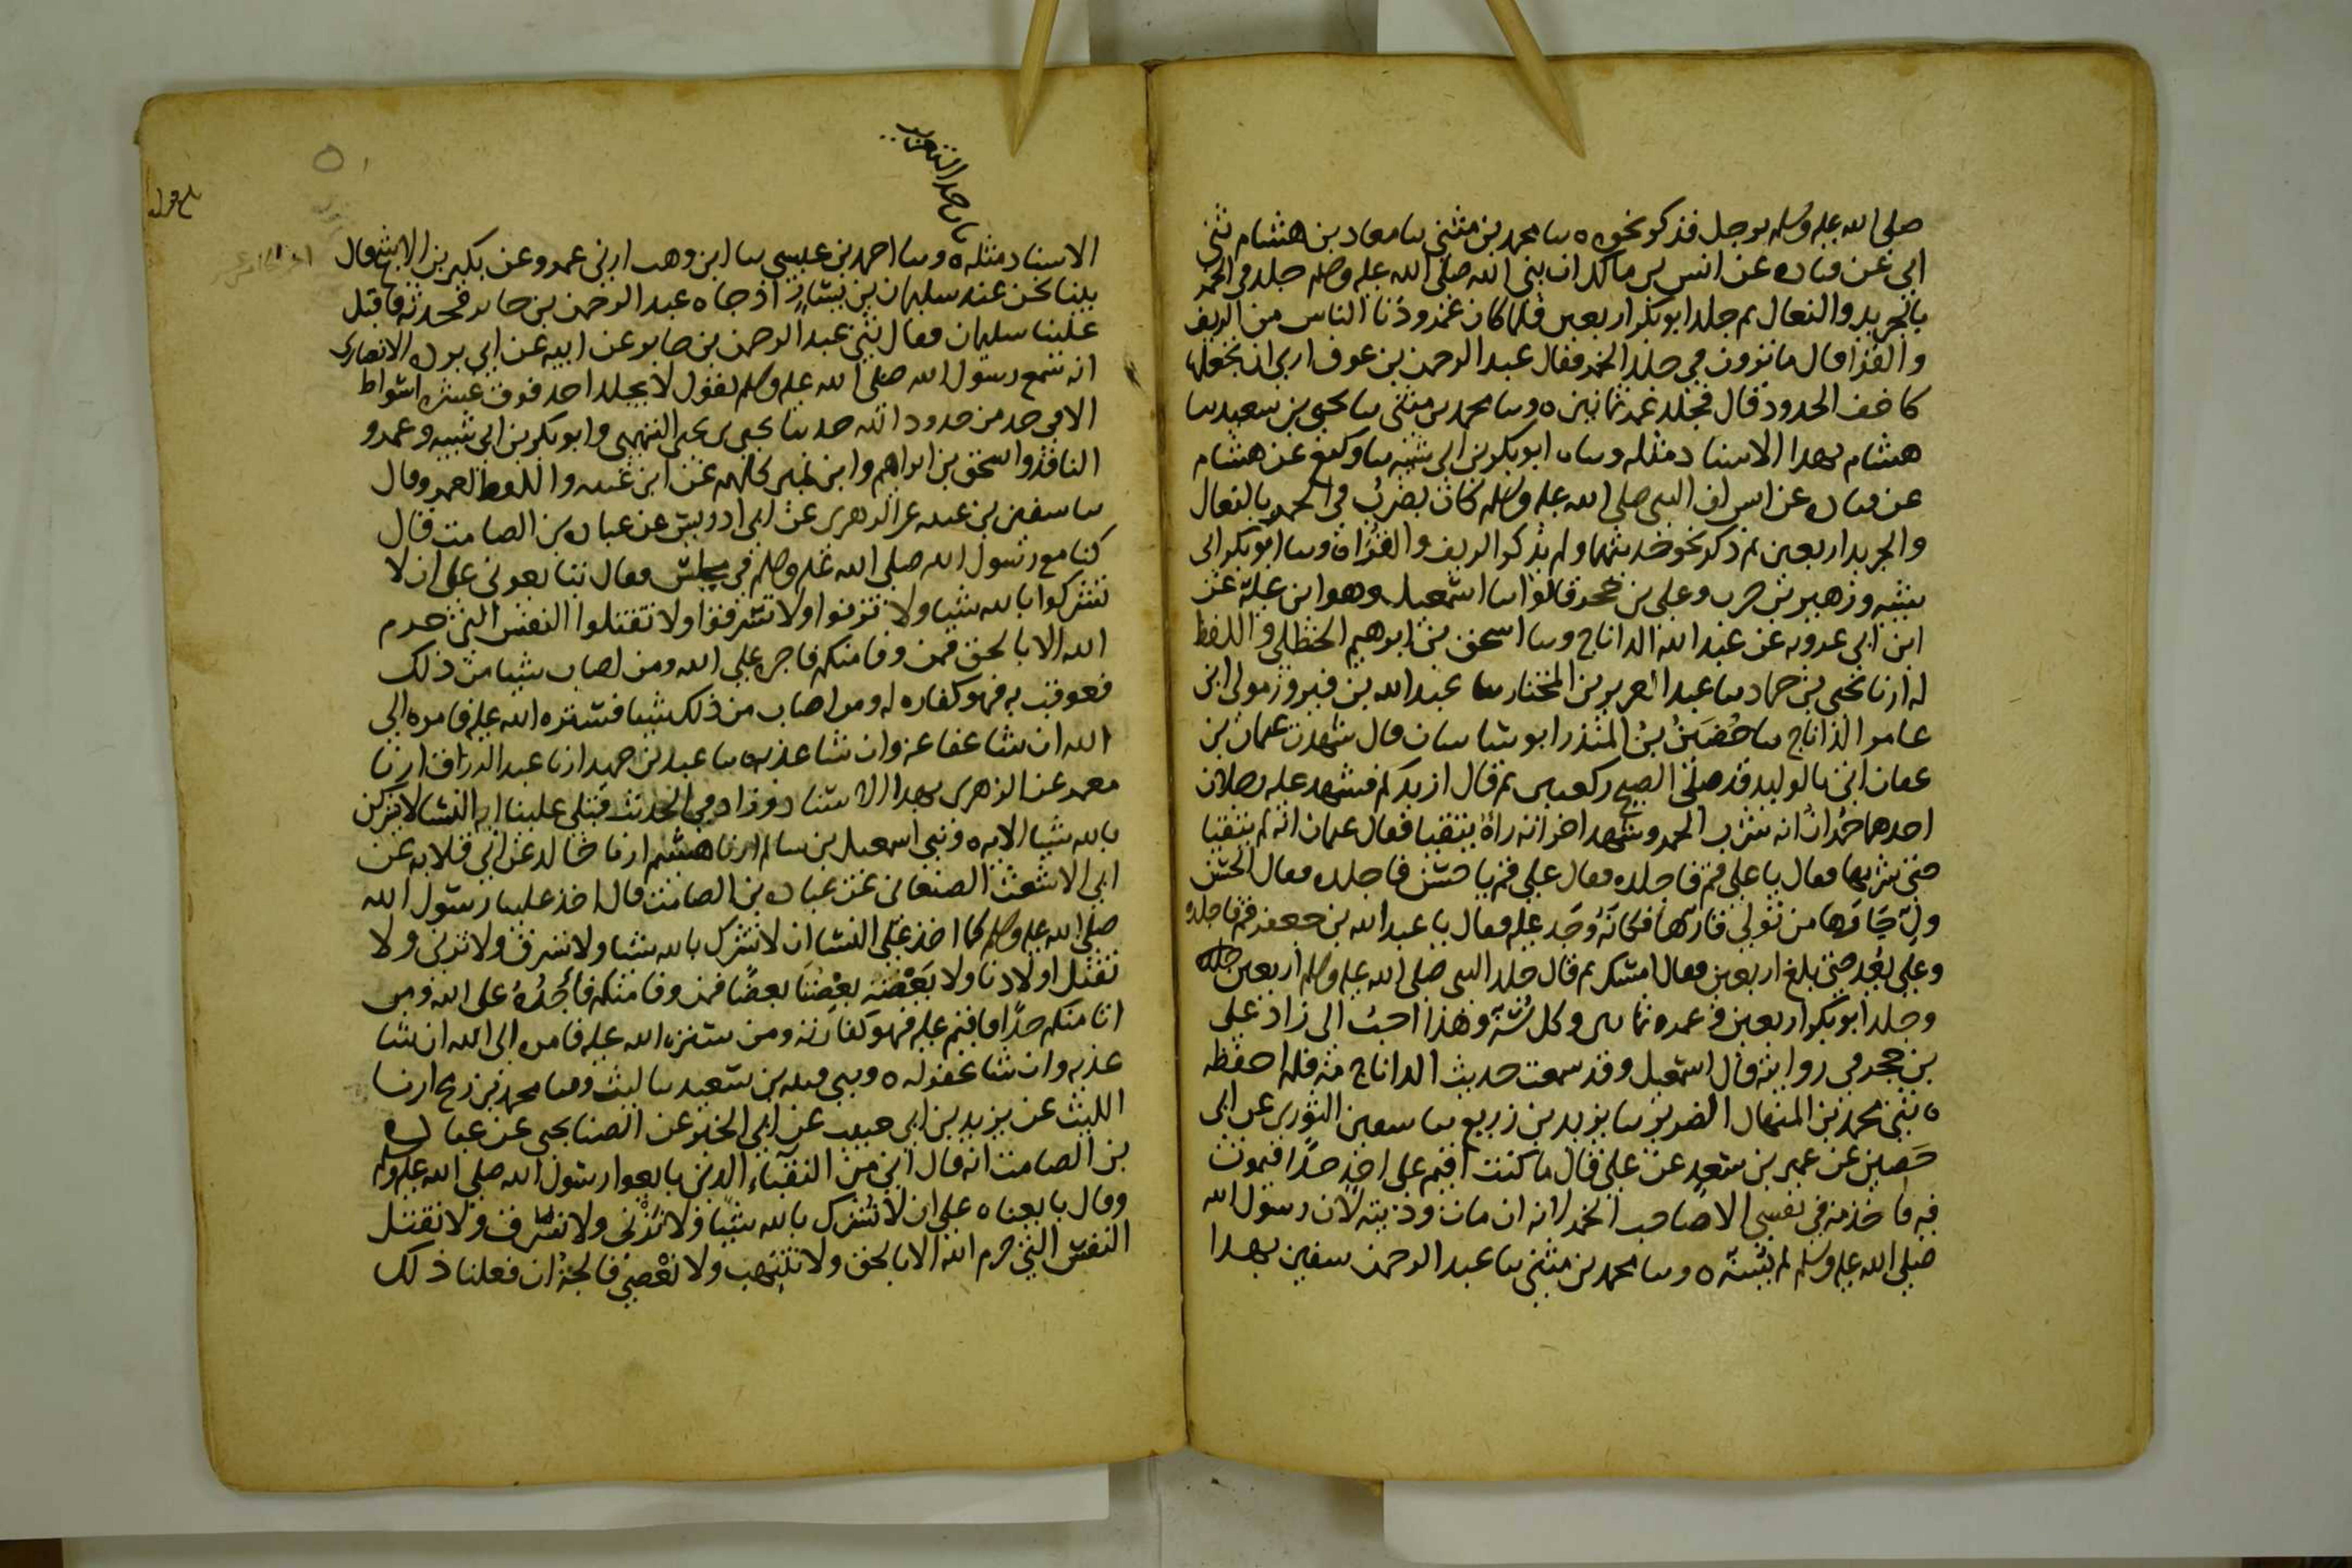 صلى الله عليه وسلم برجل فذكر نحوه ٥ سا محمد بن مثنى سا معاذ بن هشام ثنى
ابى عن قتاده عن انس بن مالك ان نبى الله صلى الله عليه وسلم جلد فى الخمر
بالجريد والنعال ثم جلد ابو بكر اربعين فلما كان عمر ودنا الناس من الريف
والقرا قال ما ترون فى جلد الخمر فقال عبد الرحمن بن عوف ارى ان تجعلها
كاخف الحدود قال فجلد عمر ثمانين ٥ وسا محمد بن مثنى سا يحيى بن سعيد سا
هشام بهذا الاسناد مثله وسا ابو بكر بن ابى شيبه سا وكيع عن هشام
عن قتاده عن انس ان النبى صلى الله عليه وسلم كان يضرب فى الخمر بالنعال
والجريد اربعين ثم ذكر نحو حديثهما ولم يذكر الريف والقرا ٥ وسا ابو بكر ابى
شيبه وزهير بن حرب وعلى بن حجر قالوا سا اسمعيل وهو ابن علية عن
ابن ابى عروبه عن عبد الله الداناج وسا اسحق بن ابرهيم الحنظلى واللفظ
له ارنا يحيى بن حماد سا عبد العزيز بن المختار سا عبد الله بن فيروز مولى ابن
عامر الداناج سا حُضَينُ بنُ المنذر ابو ساسان قال شهدت عثمان بن
عفان اتى بالوليد قد صلى الصبح ركعتين ثم قال ازيدكم فشهد عليه رجلان
احدهما حُمران انه شرب الخمر وشهد اخر انه راهُ يتقيا فقال عثمان انه لم يتقيا
حتى شربها فقال يا على قم فاجلده فقال على قم يا حسن فاجلده فقال الحسن
ولِّ حَارَّها من تولى قارّها فكانّهُ وَجَد عليه فقال يا عبد الله بن جعفر قم فاجلده
وعلى يعُد حتى بلغ اربعين فقال امسك ثم قال جلد النبى صلى الله عليه وسلم اربعين
وجلد ابو بكر اربعين وعمر ثمانين وكل سُنة وهذا احبُ الى زاد على
بن حجر فى روايته قال اسمعيل وقد سمعت حديث الداناج منه فلم احفظه
٥ ثنى محمد بن المنهال الضرير سا يزيد بن زريع سا سفين الثورى عن ابى
حَصين عن عمير بن سعيد عن على قال ما كنت اقيم على احدٍ حدًا فيموت
فيه فاجد منه فى نفسى الا صاحب الخمر انه ان مات وديته لان رسول الله
صلى الله عليه وسلم لم يسنه ٥ وسا محمد بن مثنى سا عبد الرحمن سفين بهذا
باب حد التعزير
الاسناد مثله ٥ وسا احمد بن عيسى سا ابن وهب ارنى عمرو عن بكير بن الاشج قال
بينا نحن عند سليمان بن يسار اذ جاه عبد الرحمن بن جابر فحدثه فاقبل
علينا سليمان فقال ثنى عبد الرحمن بن جابر عن ابيه عن ابى برده الانصارى
انه سمع رسول الله صلى الله عليه وسلم يقول لا يجلد احد فوق عشره اسواط
الا فى حد من حدود الله حدثنا يحيى بن يحيى التميمى وابو بكر بن ابى شيبه وعمرو
الناقد واسحق بن ابراهيم وابن نمير كلهم عن ابن عيينه واللفظ لعمرو قال
سا سفين بن عيينه عن الزهرى عن ابى ادريس عن عباده بن الصامت قال
كنا مع رسول الله صلى الله عليه وسلم فى مجلس فقال تبايعونى على ان لا
تشركوا بالله شيا ولا تزنوا ولا تسرقوا ولا تقتلوا النفس التى حرم
الله الا بالحق فمن وفا منكم فاجره على الله ومن اصاب شيا من ذلك
فعوقب به فهو كفاره له ومن اصاب من ذلك شيا فستره الله عليه فامره الى
الله ان شا عفا عنه وان شا عذبه سا عبد بن حميد ارنا عبد الرزاق ارنا
معمر عن الزهرى بهذا الاسناد وزاد فى الحديث فتلى علينا ايه النسا لا يشركن
بالله شيا الايه ٥ وثنى اسمعيل بن سالم ارنا هشيم ارنا خالد عن ابى قلابه عن
ابى الاشعث الصنعانى عن عباده بن الصامت قال اخذ علينا رسول الله
صلى الله عليه وسلم كما اخذ على النسا ان لا نشرك بالله شيا ولا نسرق ولا نزنى ولا
نقتل اولادنا ولا يَعْضَهَ بعْضُنا بعضًا فمن وفا منكم فأجْرُهُ على الله ومن
اتا منكم حدًّا فاقيم عليه فهو كفارته ومن ستره الله عليه فامره الى الله ان شا
عذبه وان شا غفر له ٥ وثنى قتيبه بن سعيد سا ليث وسا محمد بن رمح ارنا
الليث عن يزيد بن ابى حبيب عن ابى الخير عن الصنابحى عن عباده
بن الصامت انه قال انى من النقباء الذين بايعوا رسول الله صلى الله عليه وسلم
وقال بايعناه على ان لا نُشرك بالله شيًا ولا نَزْنى ولا نسرق ولا نقتل
النفس التى حرم الله الا بالحق ولا ننتهب ولا نعْصى فالجنة ان فعلنا ذلك